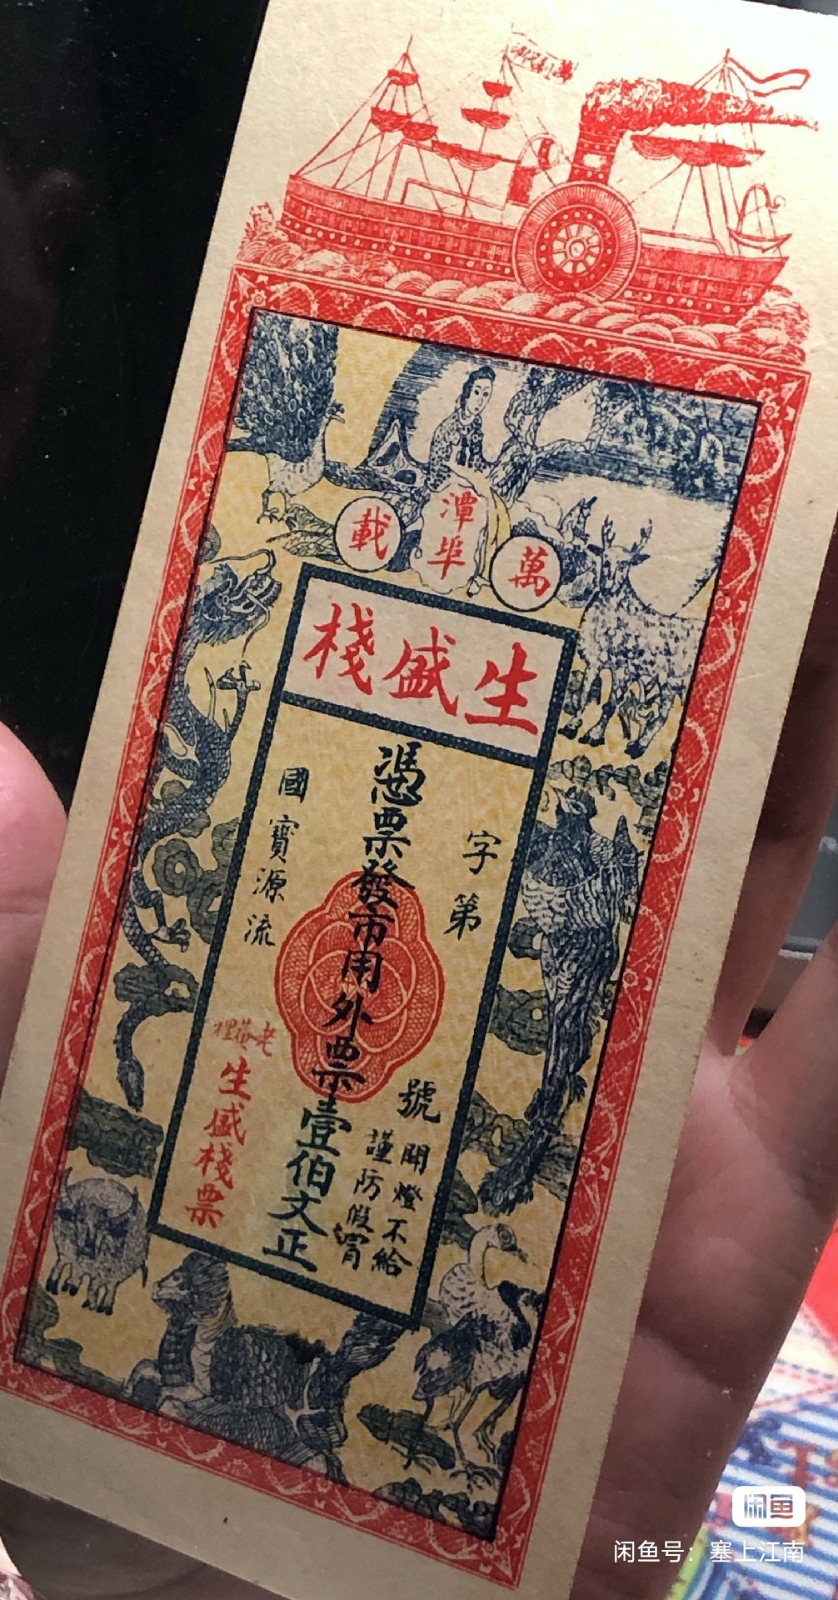 萬載
潭埠
生盛棧
字第
號
開燈不給
謹防假冒
憑票發市用外票壹伯文正
國寶源流
生盛棧票
闲鱼
闲鱼号：塞上江南